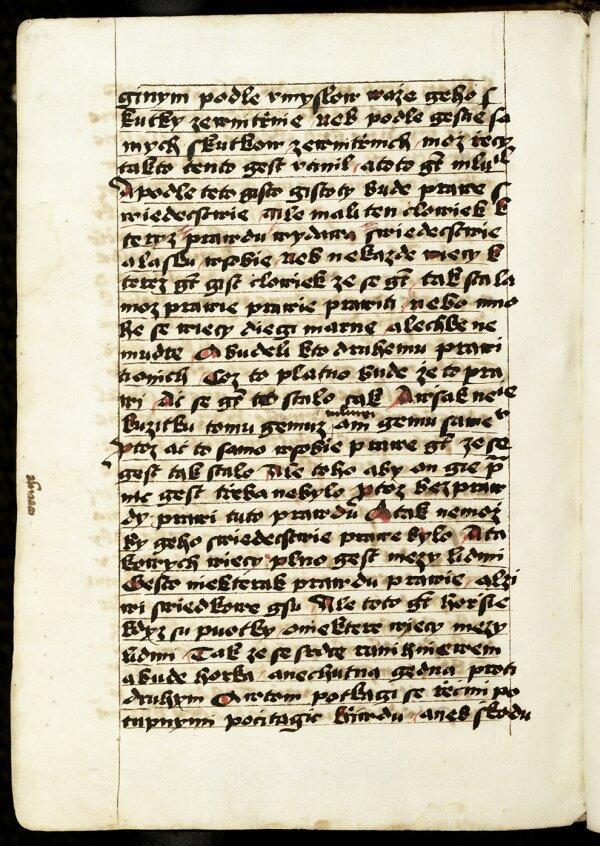 ginym podle vmyslow moze geho s
kutky zewnitrnie neb podle gesıe sa
mych skutkow zewnitrnich moz rzecy
takto tento gest vcinil a toto gt mluuil
A podle teto gisto gistoty bude prawe s
wiedecstwie ale mali ten clowiek k
teryz prawdu wydawa swiedecstwie
a lasku w sobie neb ne kazde wiecy k
terez gt gist clowiek ze se gt tak stala
moz prawie prawie prawiti nebo mno
he se wiecy diegi marne a lechke ne
mudre A budeli kto druhemu prawi
ti o nich Coz to platno bude ze to pra
wi Ac se gt to stalo tak Awsak neie
k uzitku tomu gemuz mluwi ani gemu samev
ptoz ac to samo w sobie prawe gt ze se
gest tak stalo Ale toho aby on gie p
nic gest trzeba nebylo ptoz bez praw
dy prawi tuto prawdu A tak nemoz
by geho swiedecstwie prawe bylo A ta
kowych wiecy plno gest mezy lidmi
Gesto niekterak prawdu prawie a lzi
wi swiedkowe gsu Ale toto gt horsie
kdyz su puotky o niektere wiecy mezy
lidmi Tak ze se srdce rani hniewem
a bude horka a nechutna gedna proti
druhym A w tom potkagi se recmi po
tupnymi pocitagic kriwdu aneb skodu